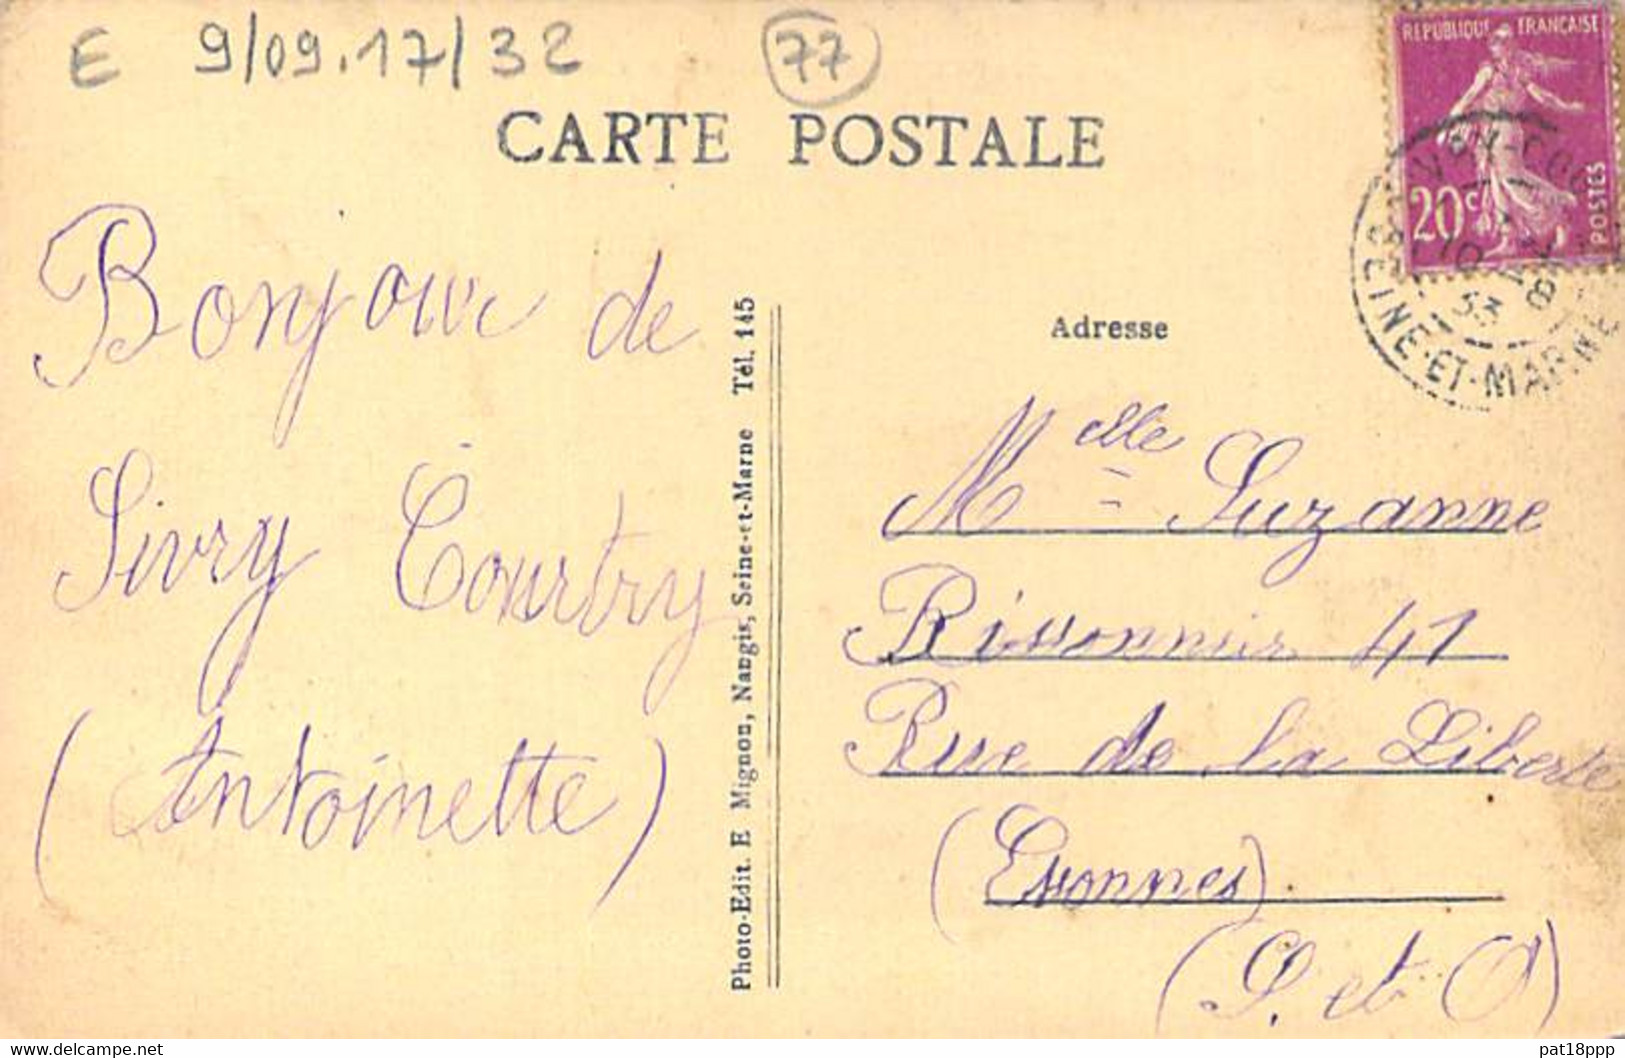 E 9/09.17/32 77
CARTE POSTALE
REPUBLIQUE FRANÇAISE
20c
POSTES
SEINE-ET-MARNE
Bonjour de
Sivry Courtry
(Antoinette)
Photo-Edit. E Mignon, Nangis, Seine-et-Marne Tél. 145
Adresse
Melle Suzanne
41
Rue de la Liberté
(Essonnes).
(S. et O)
pat18ppp